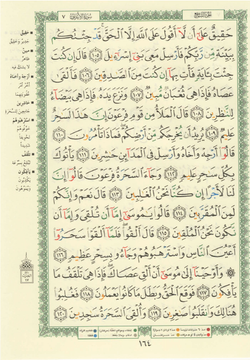 حَقِيقٌ عَلَىٰ أَن لَّا أَقُولَ عَلَى اللَّهِ إِلَّا الْحَقَّ قَدْ جِئْتُكُم
بِبَيِّنَةٍ مِّن رَّبِّكُمْ فَأَرْسِلْ مَعِيَ بَنِي إِسْرَائِيلَ ١٠٥ قَالَ إِن كُنتَ
جِئْتَ بِآيَةٍ فَأْتِ بِهَا إِن كُنتَ مِنَ الصَّادِقِينَ ١٠٦ فَأَلْقَىٰ
عَصَاهُ فَإِذَا هِيَ ثُعْبَانٌ مُّبِينٌ ١٠٧ وَنَزَعَ يَدَهُ فَإِذَا هِيَ بَيْضَاءُ
لِلنَّاظِرِينَ ١٠٨ قَالَ الْمَلَأُ مِن قَوْمِ فِرْعَوْنَ إِنَّ هَٰذَا لَسَاحِرٌ
عَلِيمٌ ١٠٩ يُرِيدُ أَن يُخْرِجَكُم مِّنْ أَرْضِكُمْ فَمَاذَا تَأْمُرُونَ ١١٠
قَالُوا أَرْجِهْ وَأَخَاهُ وَأَرْسِلْ فِي الْمَدَائِنِ حَاشِرِينَ ١١١ يَأْتُوكَ
بِكُلِّ سَاحِرٍ عَلِيمٍ ١١٢ وَجَاءَ السَّحَرَةُ فِرْعَوْنَ قَالُوا إِنَّ
لَنَا لَأَجْرًا إِن كُنَّا نَحْنُ الْغَالِبِينَ ١١٣ قَالَ نَعَمْ وَإِنَّكُمْ
لَمِنَ الْمُقَرَّبِينَ ١١٤ قَالُوا يَا مُوسَىٰ إِمَّا أَن تُلْقِيَ وَإِمَّا أَن
نَّكُونَ نَحْنُ الْمُلْقِينَ ١١٥ قَالَ أَلْقُوا فَلَمَّا أَلْقَوْا سَحَرُوا
أَعْيُنَ النَّاسِ وَاسْتَرْهَبُوهُمْ وَجَاءُوا بِسِحْرٍ عَظِيمٍ ١١٦
وَأَوْحَيْنَا إِلَىٰ مُوسَىٰ أَنْ أَلْقِ عَصَاكَ فَإِذَا هِيَ تَلْقَفُ مَا
يَأْفِكُونَ ١١٧ فَوَقَعَ الْحَقُّ وَبَطَلَ مَا كَانُوا يَعْمَلُونَ ١١٨ فَغُلِبُوا
هُنَالِكَ وَانقَلَبُوا صَاغِرِينَ ١١٩ وَأُلْقِيَ السَّحَرَةُ سَاجِدِينَ ١٢٠
١٦٤